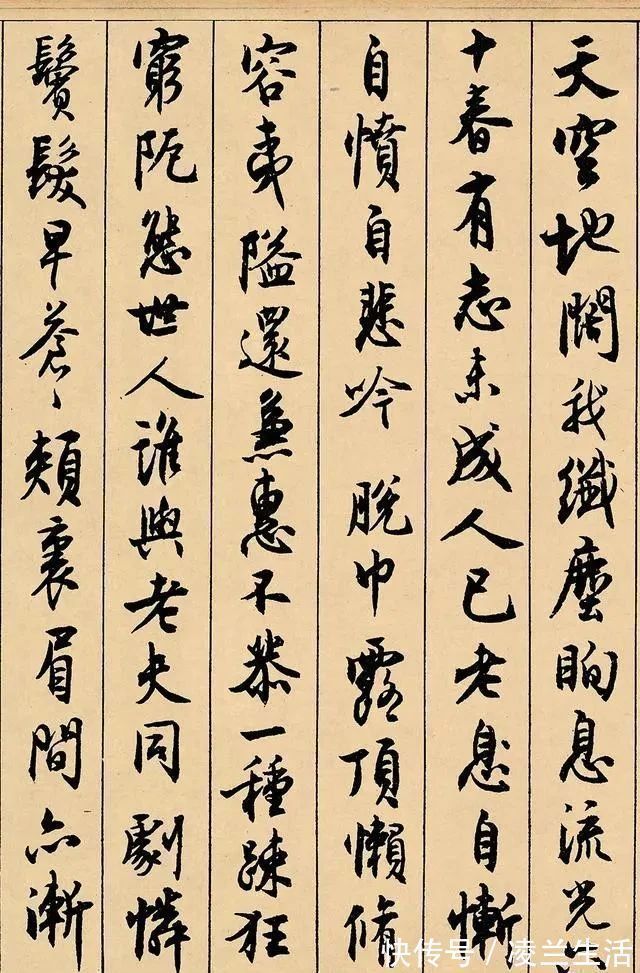 天空地闊我纖塵眴息流光六
十春有志未成人已老息自慚
自憤自悲吟 脫巾露頂懶脩
容夷隘還兼惠不恭一種踈狂
窮阨態世人誰與老夫同 劇憐
鬢髮早蒼〻頰裏眉間亦漸
快传号/凌兰生活